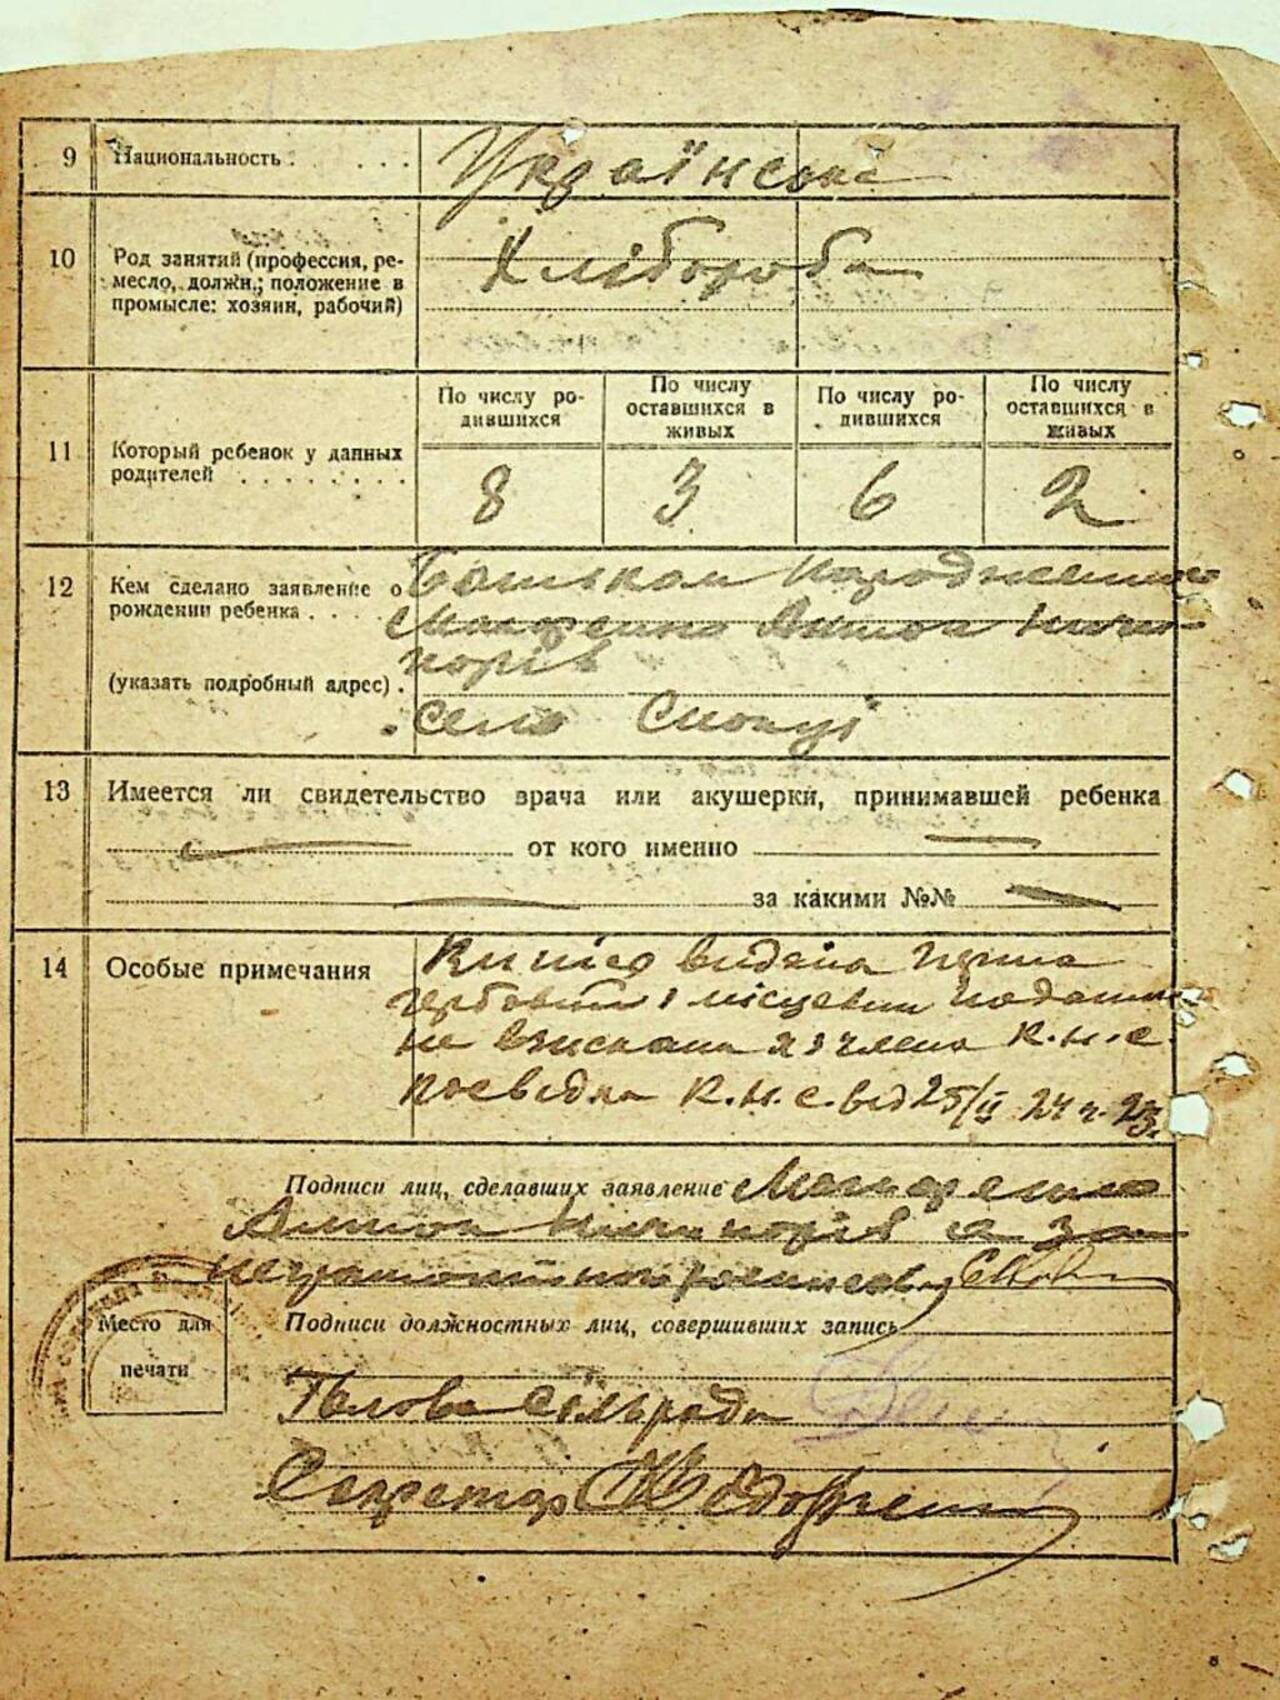 9 Национальность . . . . . Українська
10 Род занятий (профессия, ре-
месло, должн.; положение в
промысле: хозяин, рабочий)
Хлібороба
11 Который ребенок у данных
родителей . . . . . . . .
По числу ро-
дившихся
По числу
оставшихся в
живых
По числу ро-
дившихся
По числу
оставшихся в
живых
8 3 6 2
12 Кем сделано заявление о
рождении ребенка . . . .
(указать подробный адрес) .
Батьком
Макаренко Антон Ничи-
порів
село
13 Имеется ли свидетельство врача или акушерки, принимавшей ребенка
от кого именно
за какими №№
14 Особые примечания
видана
гербовий і місцевий
не взискани з члена К.Н.С.
К.Н.С. від 25/II 24 р.
Подписи лиц, сделавших заявление Макаренко
Антон Ничипорів а за
Место для
печати
Подписи должностных лиц, совершивших запись
Голова Сільради
Секретар